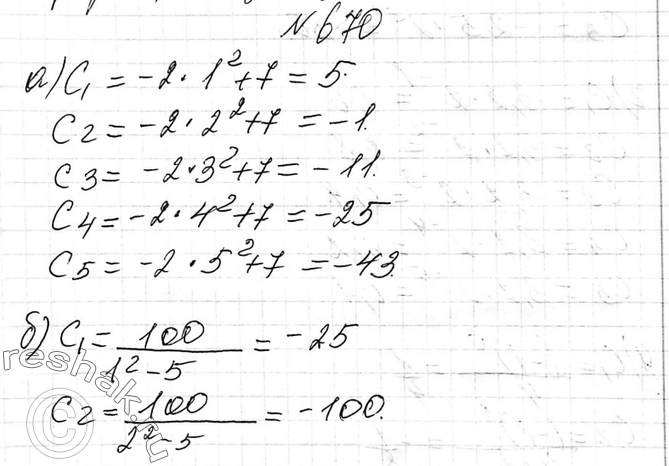 №670
а) C₁ = -2·1²+7 = 5.
C2 = -2·2²+7 = -1.
C3 = -2·3²+7 = -11.
C4 = -2·4²+7 = -25
C5 = -2·5²+7 = -43.
б) C₁ = 100/(1²-5) = -25
C2 = 100/(2²-5) = -100.
reshak.ru